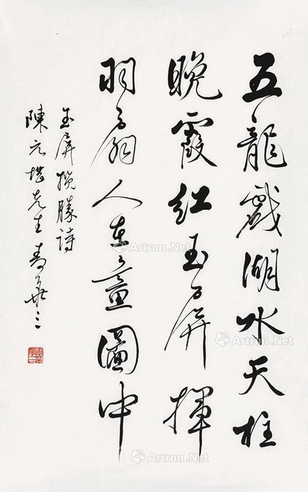 五龍戲湖水天柱
晚霞紅玉屏揮
羽扇人在畫圖中
玉屏攬勝詩
陳元塏先生壽辰
Artron.Net
Artron.Net
Artron.Net